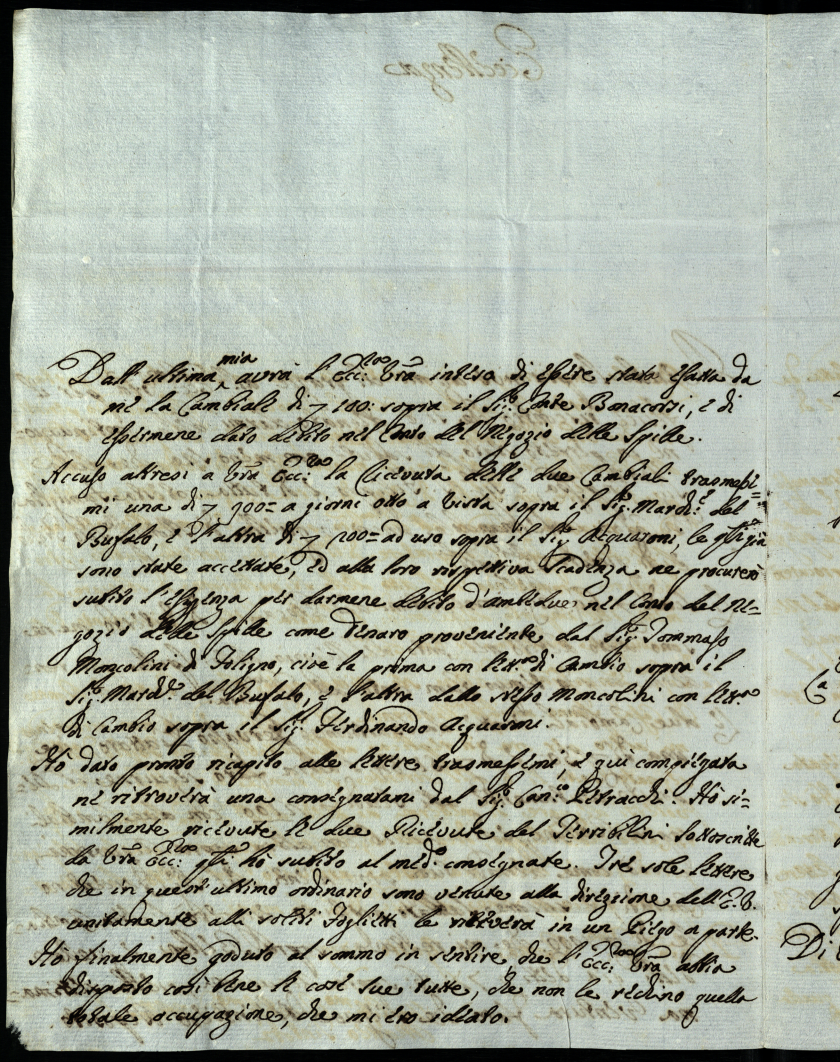 Eccellenza
Dall'ultima mia avrà l'Ecc:za Vra inteso di essere stata esatta da
me la Cambiale di 100: sopra il Sig: Conte Bonacorsi, e di
essermene dato debito nel Conto del Negozio delle Spille.
Accuso altresì à Vra Ecc:za la ricevuta delle due Cambiali trasmessi=
mi una di 900= a giorni otto à vista sopra il Sig: March:e del
Bufalo, e l'altra di 200= ad uso sopra il Sig: Acquaroni, le qli già
sono state accettate, ed alla loro rispettiva scadenza ne procurerò
subito l'esigenza per darmene debito d'ambedue nel Conto del Ne=
gozio delle Spille come denaro proveniente dal Sig: Tommaso
Moncolini di Foligno, cioè la prima con lett:a di Cambio sopra il
Sig: March:e del Bufalo, e l'altra dallo stesso Moncolini con lett:a
di Cambio sopra il Sig: Ferdinando Acquaroni.
Hò dato pronto ricapito alle lettere trasmessemi, e quì compiegata
ne ritroverà una consegnatami dal Sig: Can:co Petracchi. Hò si=
milmente ricevute le due Ricevute del Terribilini sottoscritte
da Vra Ecc:za qli hò subito al med:o consegnate. Trè sole lettere
che in quest'ultimo ordinario sono venute alla direzione dell'E.V.
unitamente alli soliti Foglietti le riceverà in un Piego a parte.
Hò finalmente goduto al sommo in sentire, che l'Ecc:za Vra abbia
disposto così bene le cose sue tutte, che non le rechino quella
totale occupazione, che mi ero ideato.